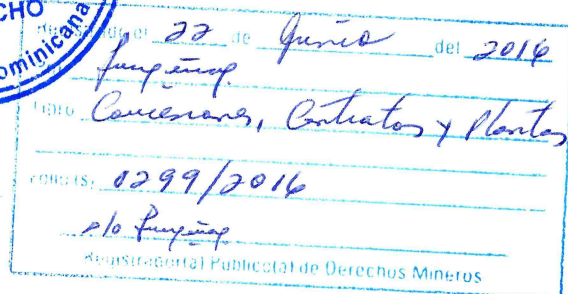 CHO
ominicana
el 22 de Junio del 2016
Libro Concesiones, Contratos y Plantas
Folio (s) 0299/2016
p/o
Registrador(a) Publico(a) de Derechos Mineros